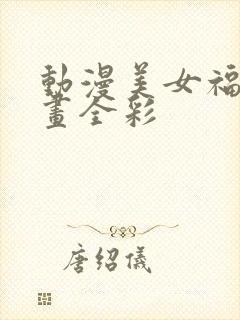 動漫美女福
畫全彩
唐绍儀